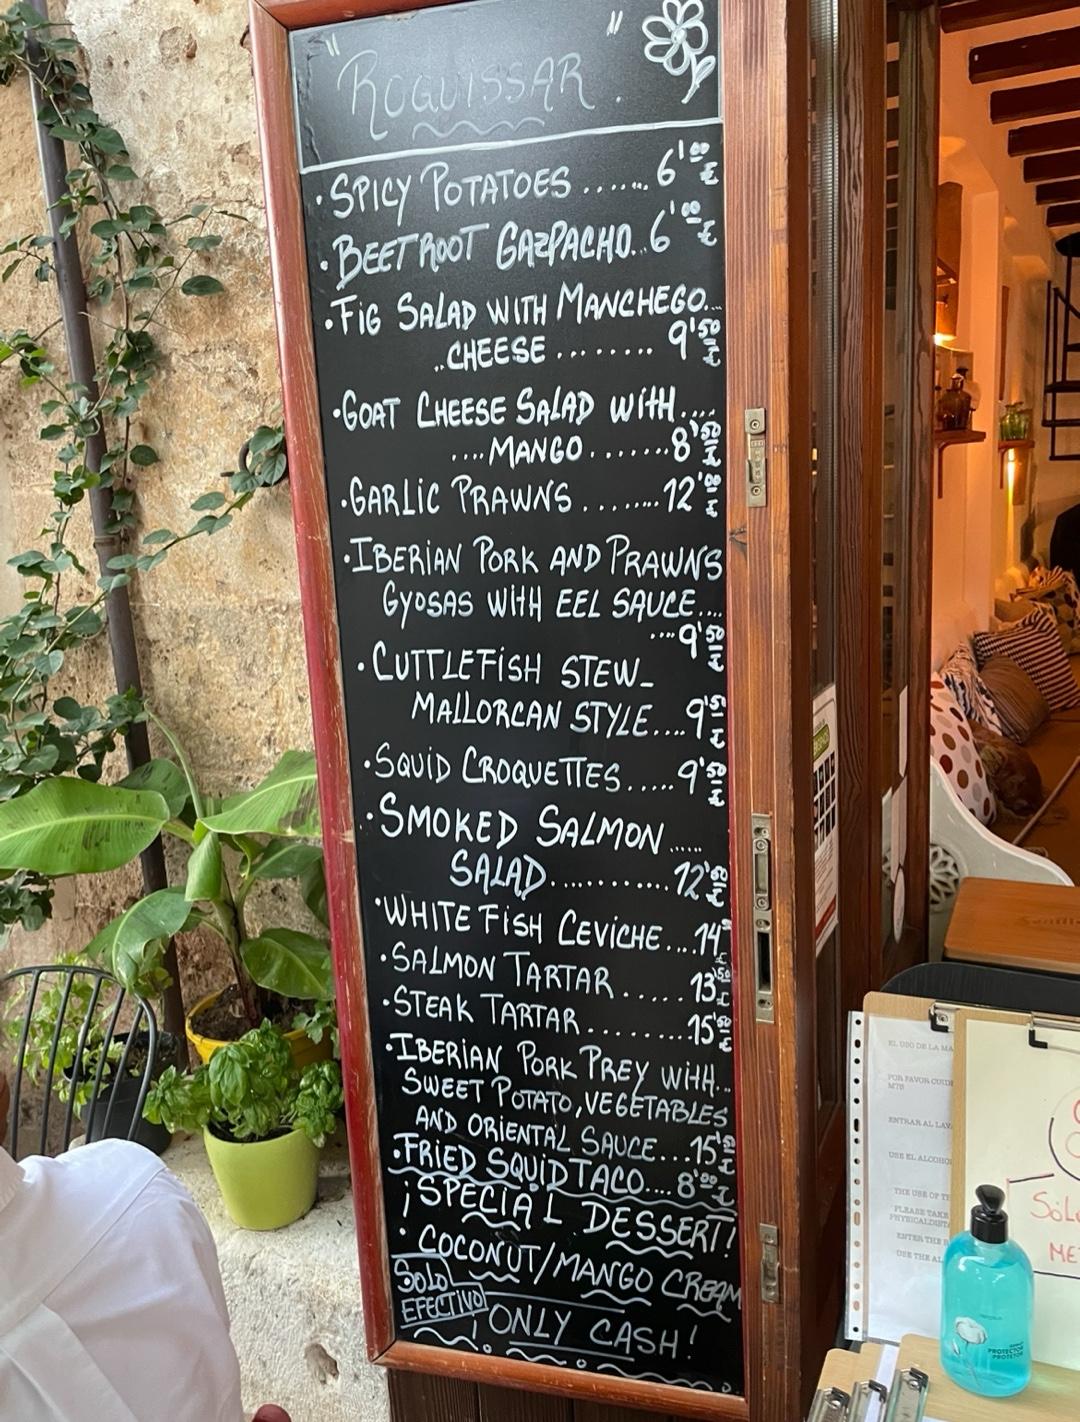 "ROQUISSAR".
· SPICY POTATOES ...... 6'00 €
· BEETROOT GAZPACHO.. 6'00 €
· FIG SALAD WITH MANCHEGO...
..CHEESE ........ 9'50 €
· GOAT CHEESE SALAD WITH....
....MANGO ....... 8'50 €
· GARLIC PRAWNS ....... 12'00 €
· IBERIAN PORK AND PRAWNS
GYOSAS WITH EEL SAUCE....
....9'50 €
· CUTTLEFISH STEW_
MALLORCAN STYLE....9'50 €
· SQUID CROQUETTES..... 9'50 €
· SMOKED SALMON .....
SALAD.......... 12'50 €
· WHITE FISH CEVICHE....14' €
· SALMON TARTAR ..... 13'50 €
· STEAK TARTAR....... 15'50 €
· IBERIAN PORK PREY WITH...
SWEET POTATO, VEGETABLES
AND ORIENTAL SAUCE...15'50 €
· FRIED SQUID TACO.... 8'00 €
¡SPECIAL DESSERT!
· COCONUT/MANGO CREAM
SOLO
EFECTIVO
¡ONLY CASH!
EL USO DE LA MA
POR FAVOR CUIDE
MTS
ENTRAR AL LAV
USE EL ALCOHO
THE USE OF TH
PLEASE TAKE
PHYSICALDIST
ENTER THE
USE THE AL
SÓL
ME
PROTECTOR